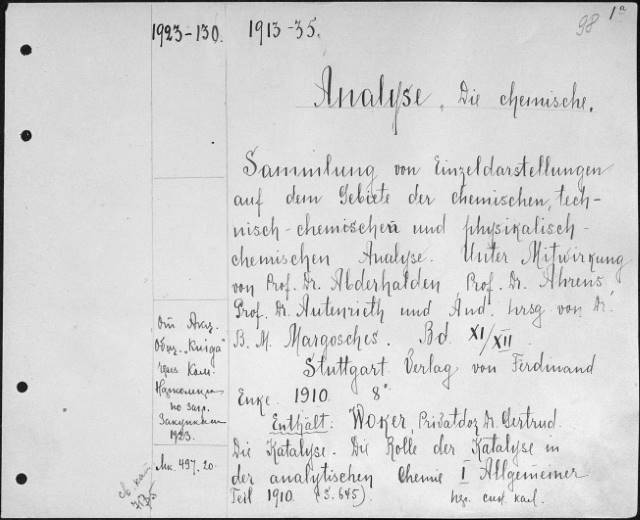 1923-130.
1913-35.
98
1a
Analyse, Die chemische.
Sammlung von Einzeldarstellungen
auf dem Gebiete der chemischen, tech-
nisch-chemischen und physikalisch-
chemischen Analyse. Unter Mitwirkung
von Prof. Dr. Abderhalden, Prof. Dr. Ahrens,
Prof. Dr. Autenrieth und And. hrsg. von Dr.
B. M. Margosches. Bd. XI/XII
Stuttgart Verlag von Ferdinand
Enke. 1910. 8°.
Enthält: Woker, Privatdoz. Dr. Gertrud.
Die Katalyse. Die Rolle der Katalyse in
der analytischen Chemie I Allgemeiner
Teil 1910. (S. 645).
От Акц.
Общ. "Книга"
через Ком.
по загр.
Закупкам
1923.
497.20.